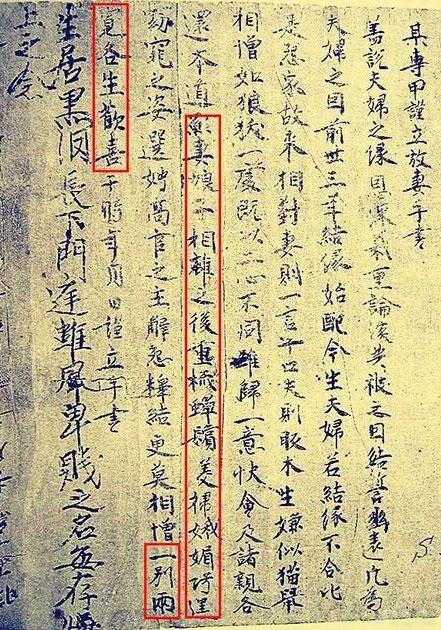 某專甲謹立放妻手書
盖說夫婦之緣恩深義重論談共被之因結誓幽遠凡為
夫婦之因前世三年結緣始配今生夫婦若結緣不合比
是怨家故來相對妻則一言十口夫則販木生嫌似猫鼠
相憎如狼犾一處既以二心不同難歸一意快會及諸親各
還本道願妻娘子相離之後重梳蟬鬢美掃娥媚巧逞
窈窕之姿選娉高官之主解怨釋結更莫相憎一別兩
寬各生歡喜于時年月日謹立手書
生居黑長下門庭雖卑賤之名無存
上之念
S.